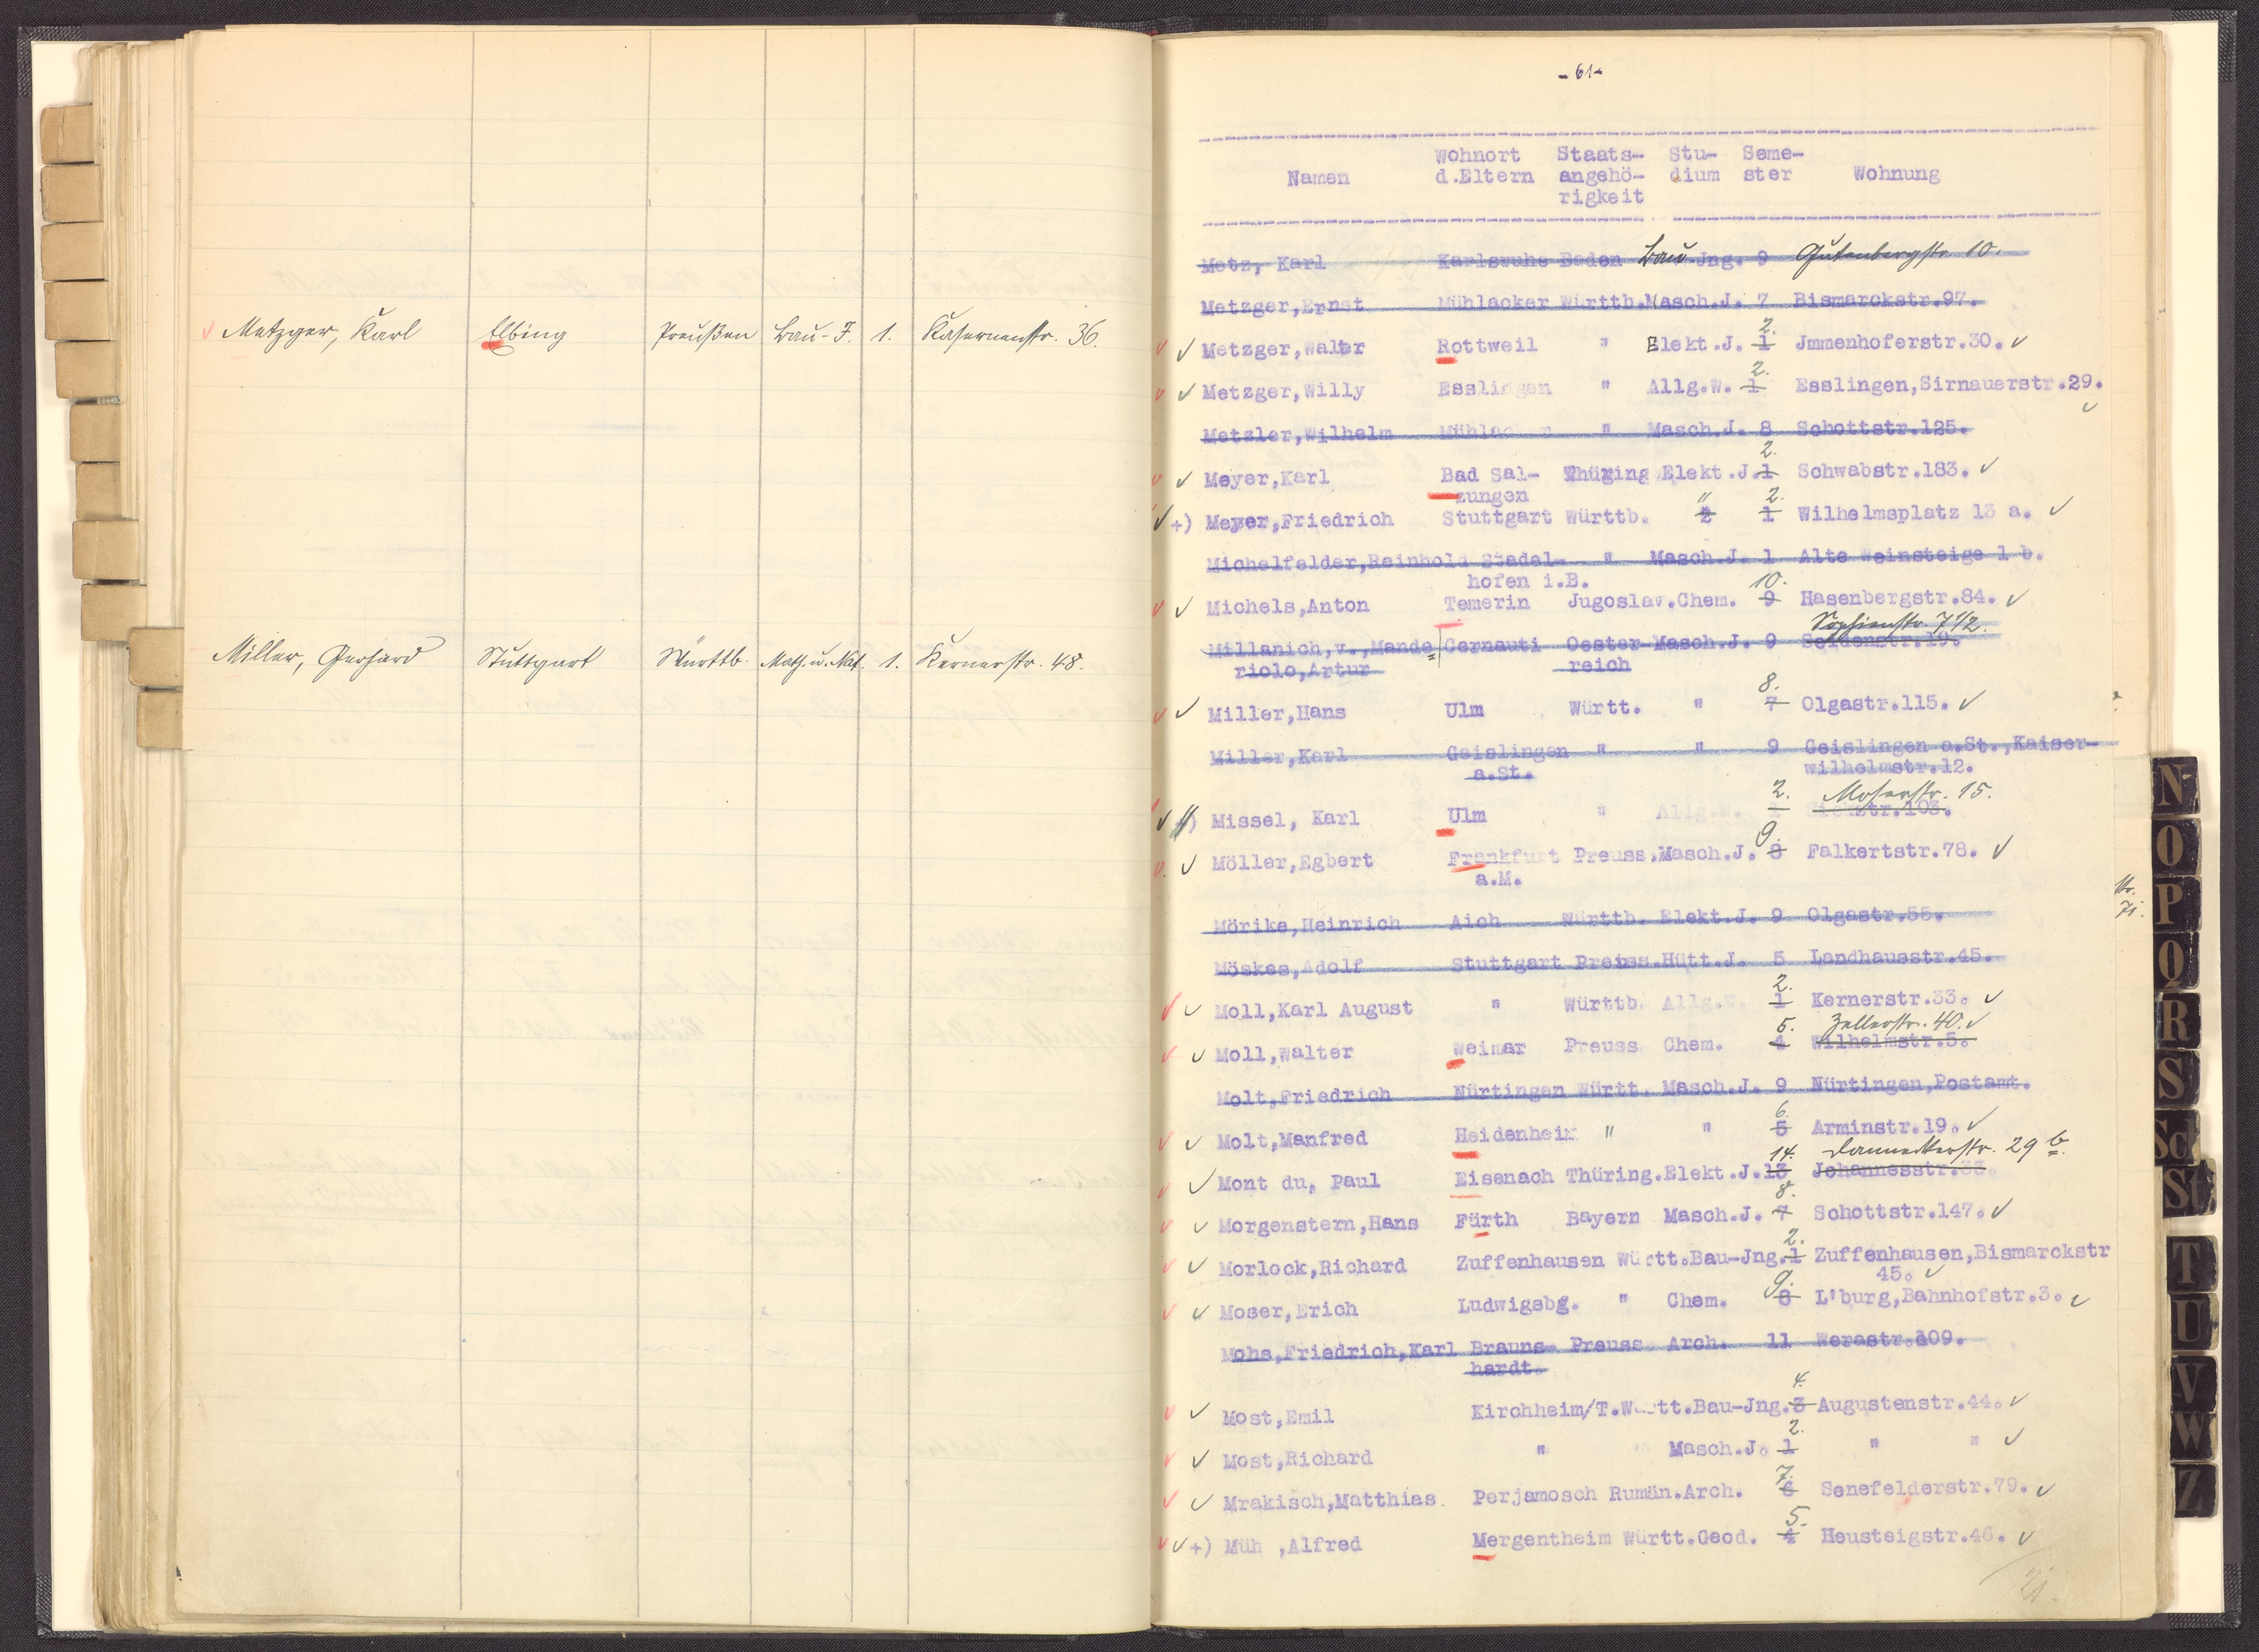 Metzger, Karl Elbing Preußen Bau-I. 1. Kasernenstr. 36.
Miller, Gerhard Stuttgart Württb. Math. u. Nat. 1. Kernerstr. 48.
- 61 -
Wohnort Staats- Stu- Seme-
Namen d.Eltern angehö- dium ster Wohnung
rigkeit
Metz, Karl Karlsruhe Baden Bau-Jng. 9 Gutenbergstr. 10.
Metzger,Ernst Mühlacker Württb.Masch.J. 7 Bismarckstr.97.
2.
Metzger,Walter Rottweil " Elekt.J. 1 Jmmenhoferstr.30.
2.
Metzger,Willy Esslingen " Allg.W. 1 Esslingen,Sirnauerstr.29.
Metzler,Wilhelm Mühlacker " Masch.J. 8 Schottstr.125.
2.
Meyer,Karl Bad Sal- Thüring.Elekt.J.1 Schwabstr.183.
zungen " 2.
+) Meyer,Friedrich Stuttgart Württb. 1 Wilhelmsplatz 13 a.
Michelfelder,Reinhold Stadel- " Masch.J. 1 Alte Weinsteige 1 b.
hofen i.B. 10.
Michels,Anton Temerin Jugoslav.Chem. 9 Hasenbergstr.84.
Sophienstr. 7 1/2.
Millanich,v.,Mande= Cernauti Oester- Masch.J. 9 Seidenstr.19.
riolo,Artur reich
8.
Miller,Hans Ulm Württ. " 7 Olgastr.115.
Miller,Karl Geislingen " " 9 Geislingen a.St.,Kaiser-
a.St. wilhelmstr.12.
2. Moserstr. 15.
+) Missel, Karl Ulm " Allg.W. str.103.
9.
Möller,Egbert Frankfurt Preuss.Masch.J. 8 Falkertstr.78.
a.M.
Mörike,Heinrich Aich Württb. Elekt.J. 9 Olgastr.55.
Möskes,Adolf Stuttgart Preuss.Hütt.J. 5 Landhausstr.45.
2.
Moll,Karl August " Württb. Allg.W. 1 Kernerstr.33.
5. Zellerstr. 40.
Moll,Walter Weimar Preuss. Chem. 4 Wilhelmstr.5.
Molt,Friedrich Nürtingen Württ. Masch.J. 9 Nürtingen,Postamt.
6.
Molt,Manfred Heidenheim " " 5 Arminstr.19.
14. Danneckerstr. 29 b.
Mont du, Paul Eisenach Thüring.Elekt.J.13 Johannesstr.33.
8.
Morgenstern,Hans Fürth Bayern Masch.J. 7 Schottstr.147.
2.
Morlock,Richard Zuffenhausen Württ.Bau-Jng.1 Zuffenhausen,Bismarckstr
45.
9.
Moser,Erich Ludwigsbg. " Chem. 8 L'burg,Bahnhofstr.3.
Mohs,Friedrich,Karl Brauns- Preuss. Arch. 11 Werastr.109.
hardt.
4.
Most,Emil Kirchheim/T.Württ.Bau-Jng.3 Augustenstr.44.
2.
Most,Richard " " Masch.J. 1 " "
7.
Mrakisch,Matthias. Perjamosch Rumän.Arch. 6 Senefelderstr.79.
5.
+) Müh ,Alfred Mergentheim Württ.Geod. 4 Heusteigstr.46.
21.
N
O
P
Q
R
S
Sch
St
T
U
V
W
Z